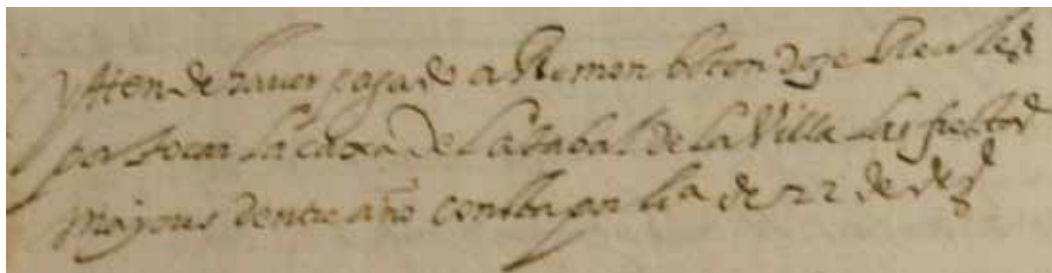 ytten de hauer pagado a Remon bton doze Reales
por tocar la caxa de latabal de la Villa las fiestas
Mayores dentre año consta por ll.ª de 22 de des.e